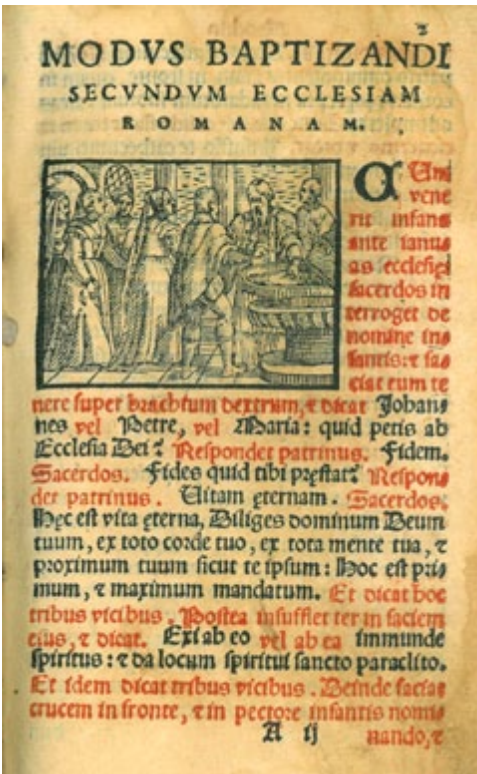 2
MODVS BAPTIZANDI
SECVNDVM ECCLESIAM
ROMANAM.
CUm
vene
rit infans
ante ianu
as ecclesię
sacerdos in
terroget de
nomine in
fantis: ⁊ fa
ciat eum te
nere super brachium dextrum, ⁊ dicat Johan
nes vel Petre, vel Maria: quid petis ab
Ecclesia Dei? Respondet patrinus. Fidem.
Sacerdos. Fides quid tibi pręstat? Respon
det patrinus. Uitam ęternam. Sacerdos.
Hęc est vita ęterna, Diliges dominum Deum
tuum, ex toto corde tuo, ex tota mente tua, ⁊
proximum tuum sicut te ipsum: Hoc est pri
mum, ⁊ maximum mandatum. Et dicat hoc
tribus vicibus. Postea insufflet ter in faciem
eius, ⁊ dicat. Exi ab eo vel ab ea immunde
spiritus: ⁊ da locum spiritui sancto paraclito.
Et idem dicat tribus vicibus. Deinde faciat
crucem in fronte, ⁊ in pectore infantis nomi
A ij nando, ⁊